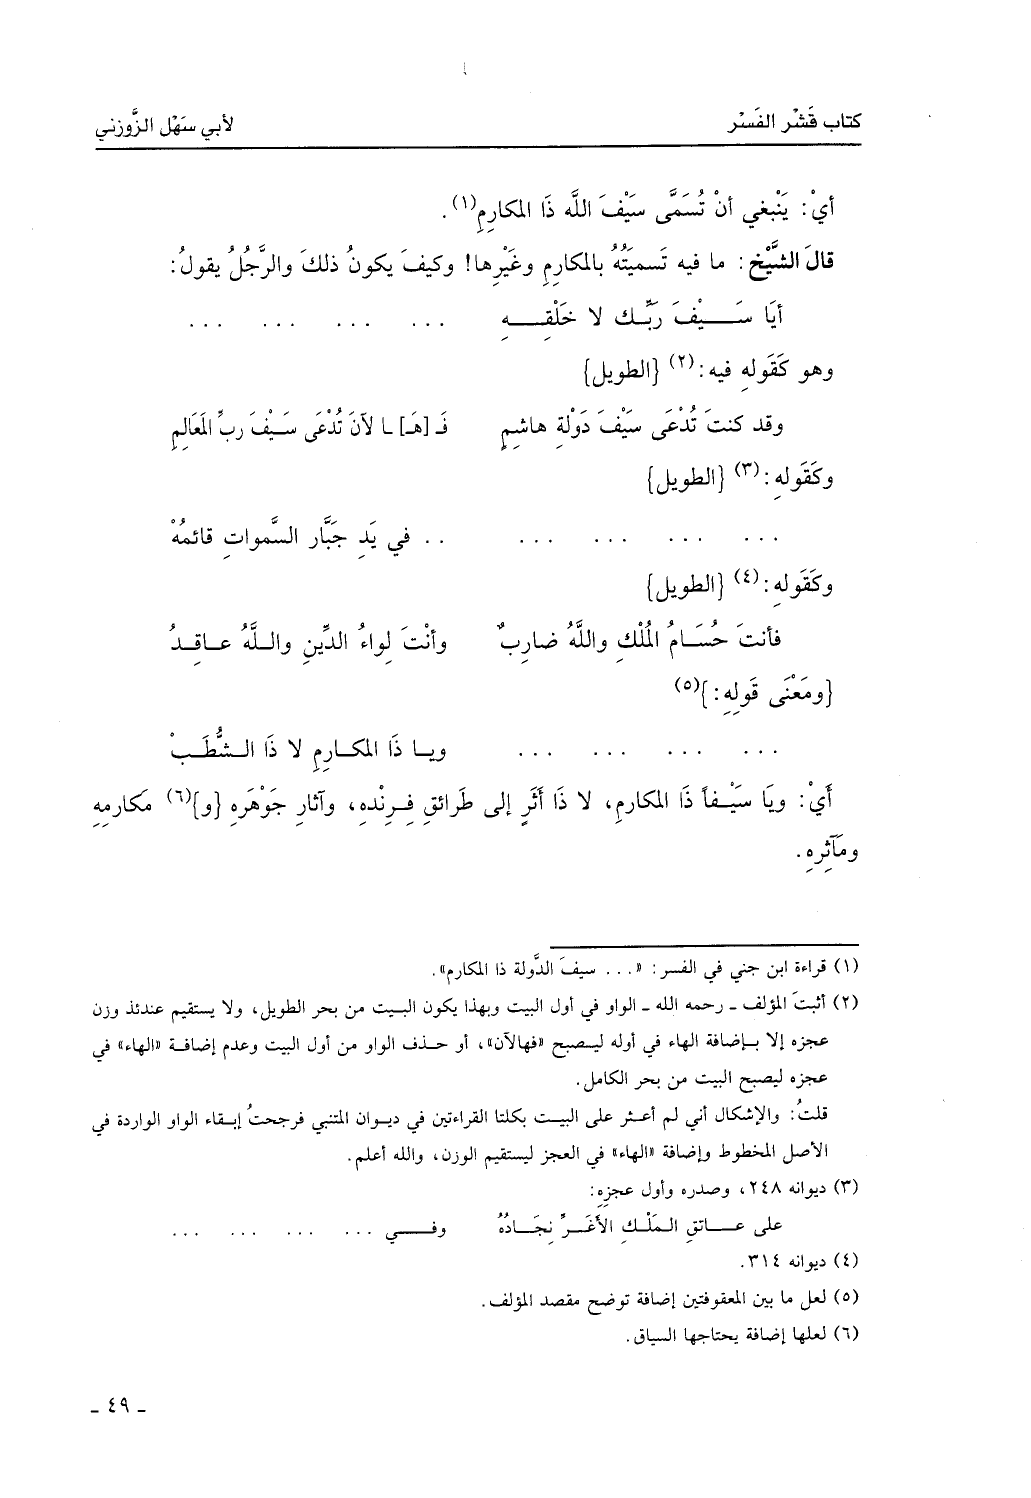 كتاب قَشْر الفَسْر
لأبي سَهْل الزَّوزني
أيْ: يَنْبغي أنْ تُسَمَّى سَيْفَ اللَّه ذَا المكارِمِ(١).
قالَ الشَّيْخ: ما فيه تَسميَتُهُ بالمكارِمِ وغَيْرِها! وكيفَ يكونُ ذلكَ والرَّجُلُ يقولُ:
أيَا سَـــيْفَ رَبِّـك لا خَلْقِـــهِ ... ... ... ...
وهو كَقَولهِ فيه:(٢) {الطويل}
وقد كنتَ تُدْعَى سَيْفَ دَوْلةِ هاشِمٍ فَـ [هَـ] ـا لآنَ تُدْعَى سَـيْفَ ربِّ المَعَالِمِ
وكَقَولهِ:(٣) {الطويل}
... ... ... ... .. في يَدِ جَبَّار السَّمواتِ قائمُهْ
وكَقَولهِ:(٤) {الطويل}
فأنتَ حُسَـامُ المُلْكِ واللَّهُ ضارِبٌ وأنْتَ لِواءُ الدِّينِ واللَّهُ عـاقِـدُ
{ومَعْنَى قَولِهِ:}(٥)
... ... ... ... ويـا ذَا المكـارِمِ لا ذَا الـشُّطَـبْ
أَيْ: ويَا سَيْـفـاً ذَا المكارِمِ، لا ذَا أَثَرٍ إلى طَرائقِ فِـرِنْده، وآثارِ جَوْهَرَه {و}(٦) مَكارمِهِ
ومَآثِرِهِ.
(١) قراءة ابن جني في الفسر: «... سيفَ الدَّولة ذا المكارم».
(٢) أثبتَ المؤلف ـ رحمه الله ـ الواو في أول البيت وبهذا يكون البيت من بحر الطويل، ولا يستقيم عندئذ وزن
عجزه إلا بـإضافة الهاء في أوله ليـصبح «فهالآن»، أو حـذف الواو من أول البيت وعدم إضافـة «الهاء» في
عجزه ليصبح البيت من بحر الكامل.
قلتُ: والإشكال أني لم أعـثر على البيـت بكلتا القراءتين في ديـوان المتنبي فرجحتُ إبـقاء الواو الواردة في
الأصل المخطوط وإضافة «الهاء» في العجز ليستقيم الوزن، والله أعلم.
(٣) ديوانه ٢٤٨، وصدره وأول عجزِه:
على عـــاتقِ المَلْـكِ الأَغَـــرِّ نِجَـادُهُ وفـــي ... ... ... ...
(٤) ديوانه ٣١٤.
(٥) لعل ما بين المعقوفتين إضافة توضح مقصد المؤلف.
(٦) لعلها إضافة يحتاجها السياق.
ـ ٤٩ ـ